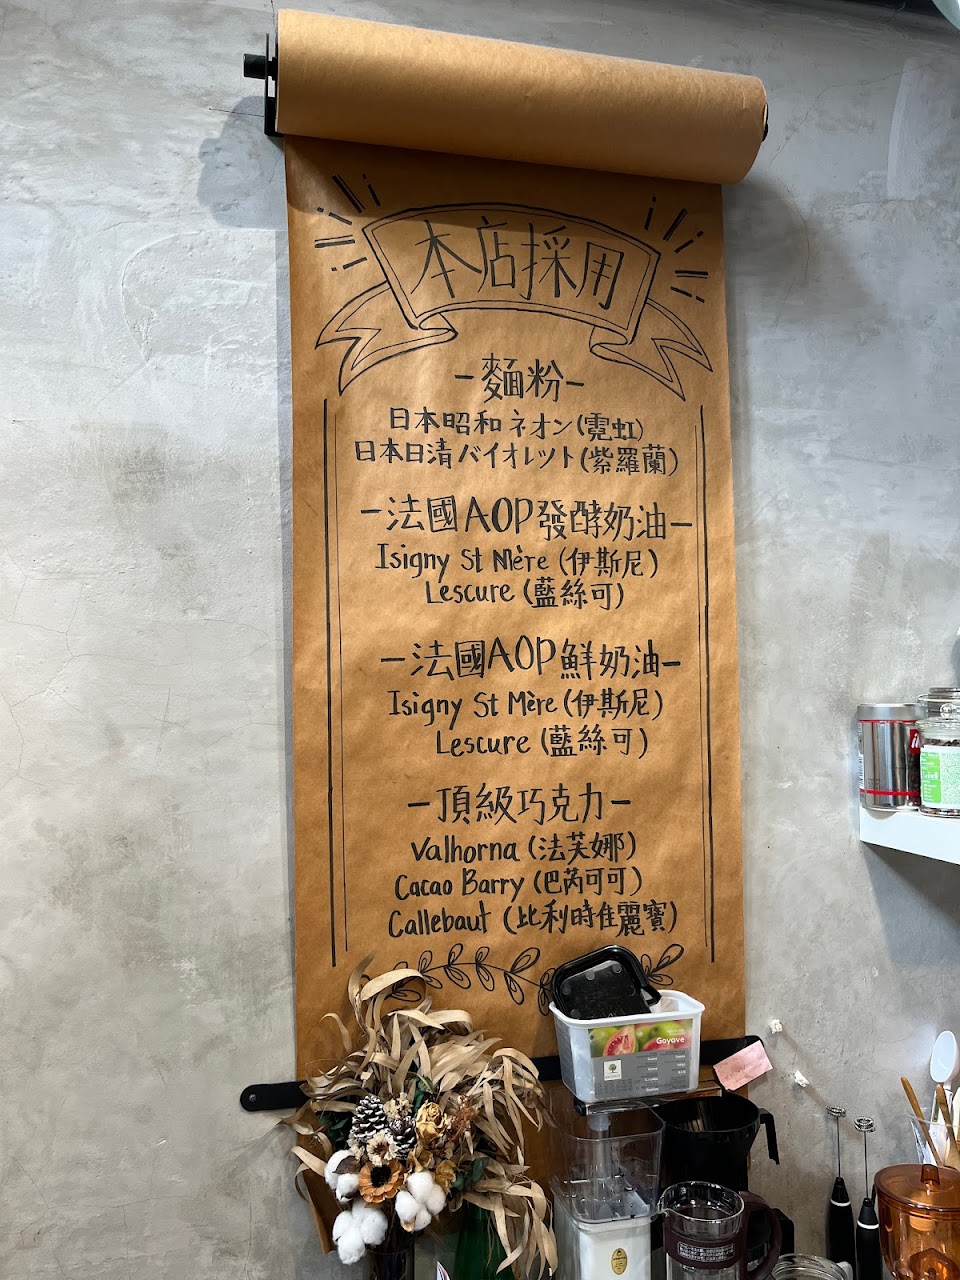 本店採用
-麵粉-
日本昭和 ネオン(霓虹)
日本日清 バイオレット(紫羅蘭)
-法國AOP發酵奶油-
Isigny St Mère (伊斯尼)
Lescure (藍絲可)
-法國AOP鮮奶油-
Isigny St Mère (伊斯尼)
Lescure (藍絲可)
-頂級巧克力-
Valhorna (法芙娜)
Cacao Barry (巴芮可可)
Callebaut (比利時佳麗寶)
Goyave